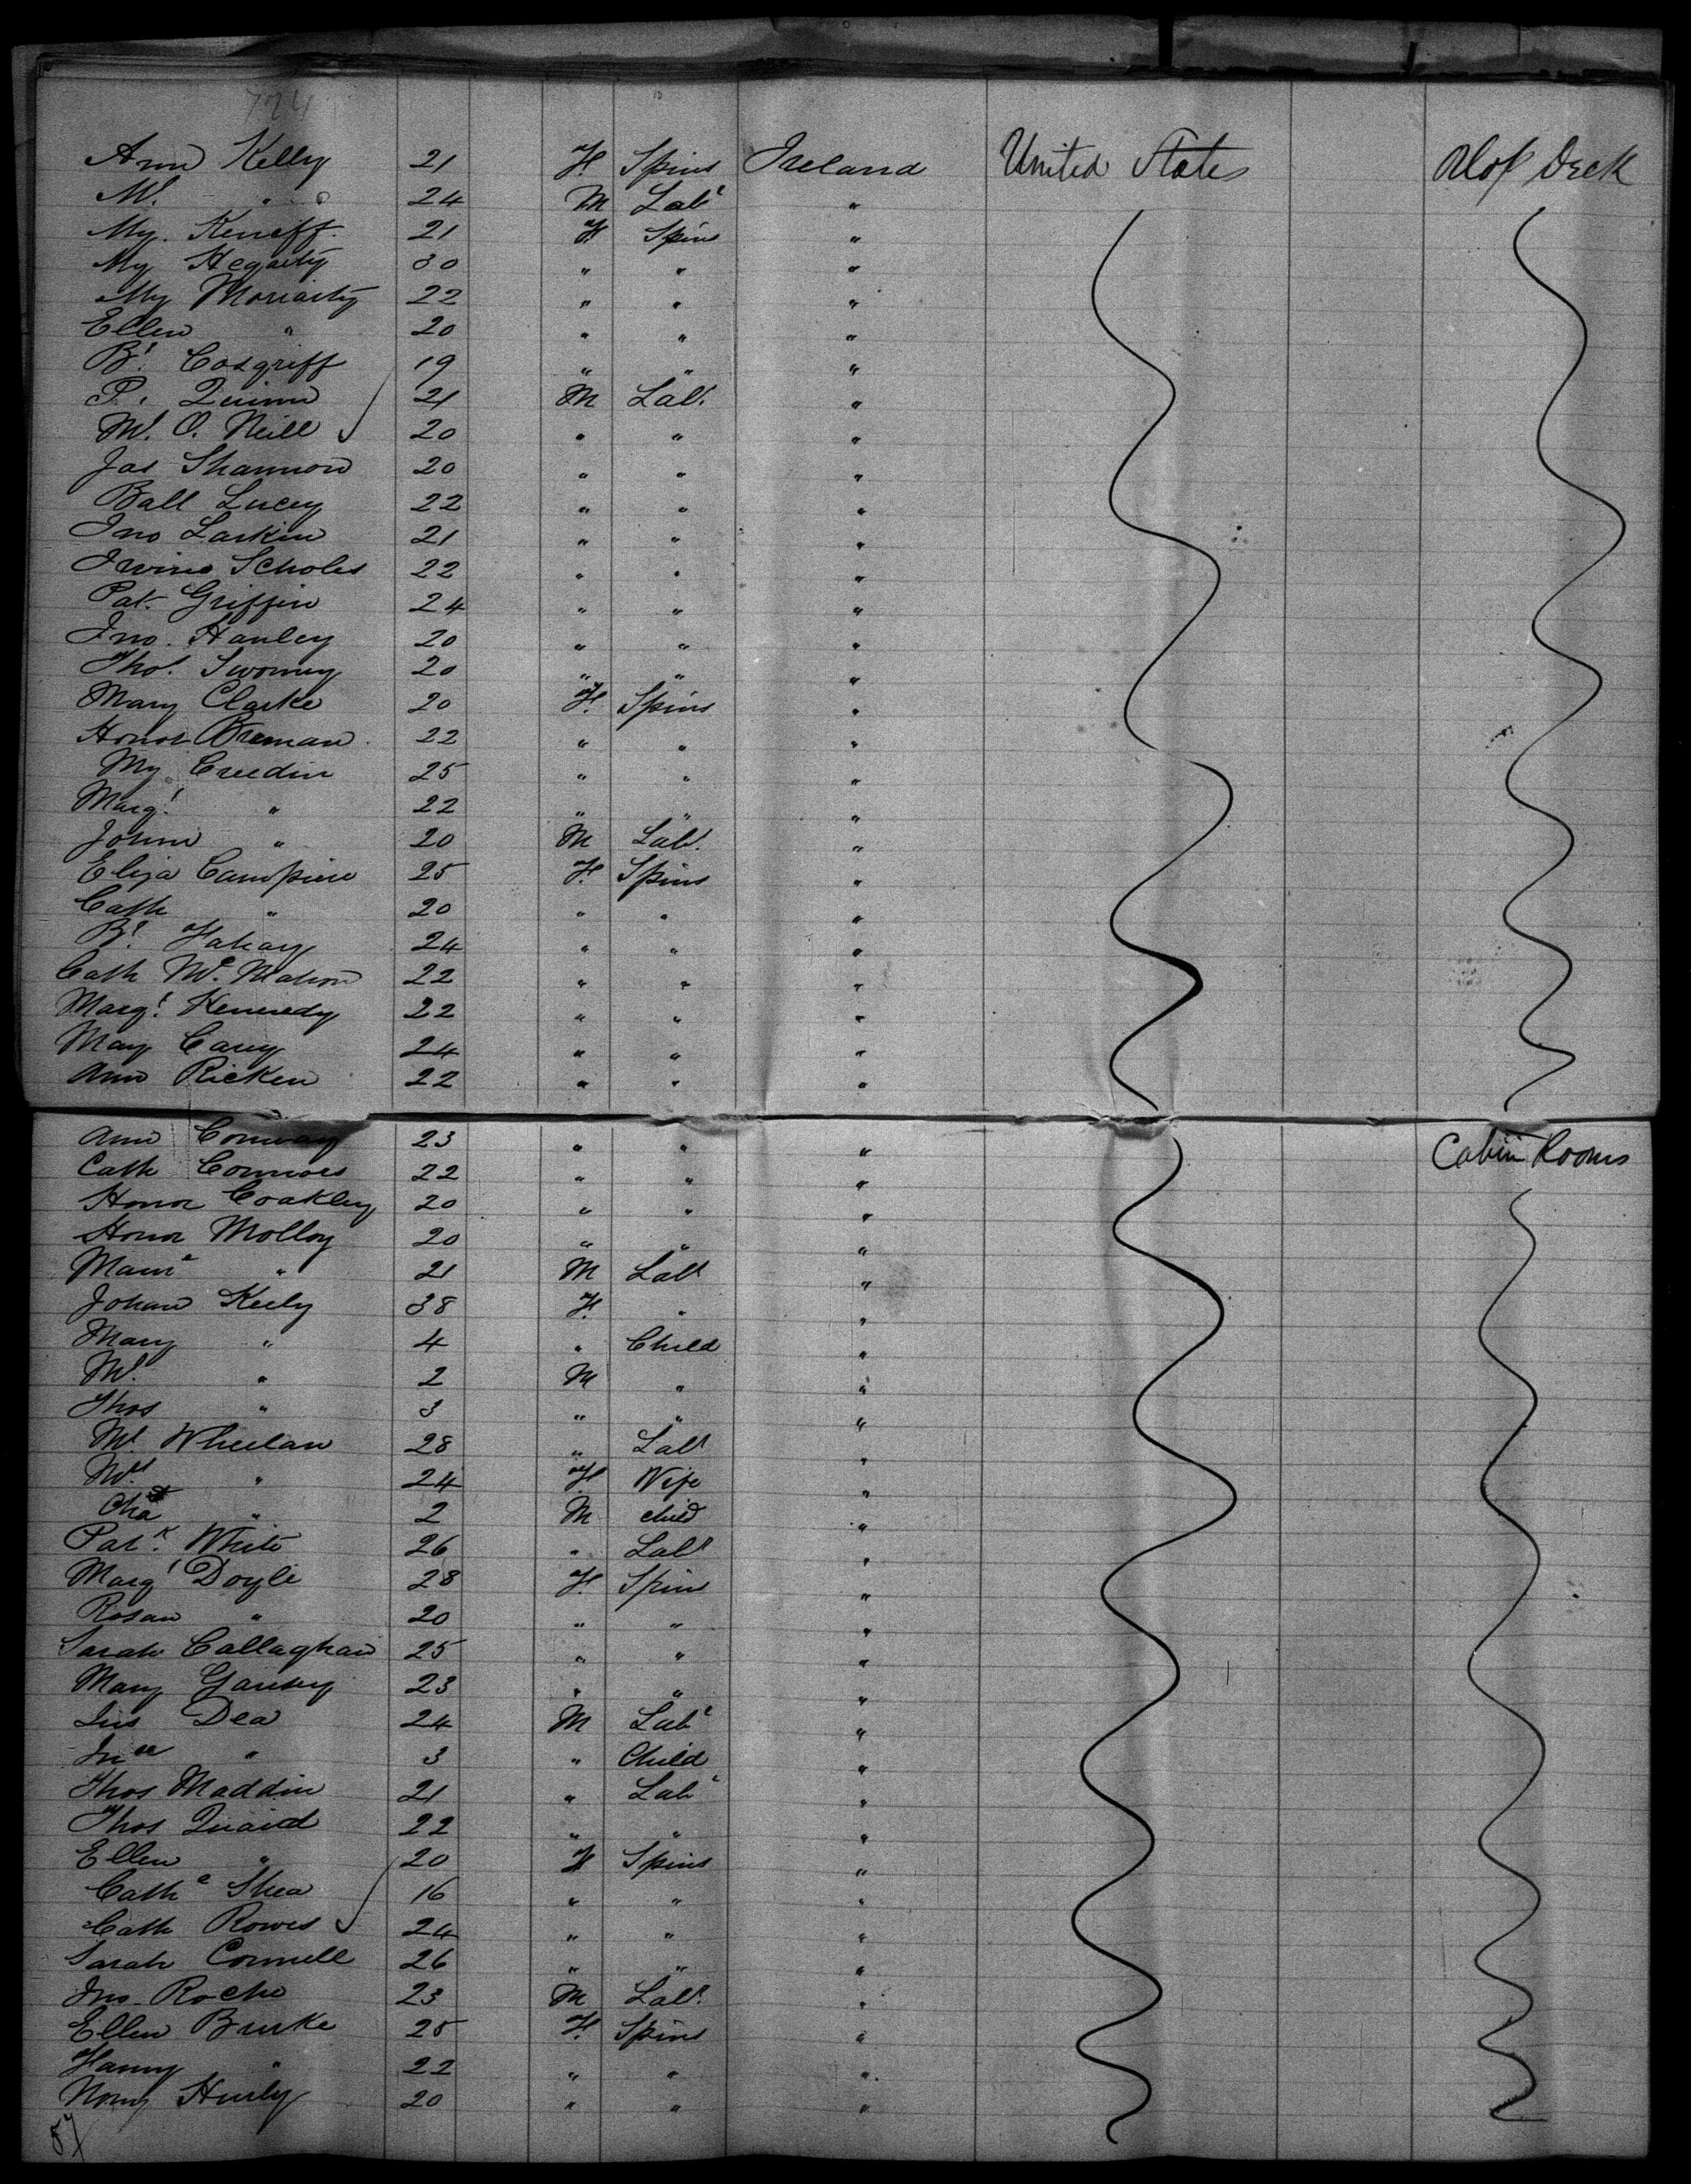 724
Ann Kelly 21 F. Spins Ireland United States Orlop Deck
Ml. " 24 M Labr "
My. Keneff. 21 F. Spins "
My Hegarty 30 " " "
My Moriarty 22 " " "
Ellen " 20 " " "
Bt. Cosgriff 19 " " "
P. Quinn 21 M Labr. "
Ml. O. Neill 20 " " "
Jas Shannon 20 " " "
Batt Lucey 22 " " "
Jno Larkin 21 " " "
Irvine Scholes 22 " " "
Pat. Griffin 24 " " "
Jno. Hanley 20 " " "
Thos. Swomey 20 " " "
Mary Clarke 20 F. Spins "
Honor Brenan 22 " " "
My Creedin 25 " " "
Margt. " 22 " " "
John " 20 M Labr. "
Eliza Campion 25 F. Spins "
Cath " 20 " " "
Bt. Fahay 24 " " "
Cath Mc. Mahon 22 " " "
Margt. Kennedy 22 " " "
Mary Carey 24 " " "
Ann Ricken 22 " " "
Ann Conway 23 " " " Cabin Rooms
Cath Connors 22 " " "
Honor Coakley 20 " " "
Honor Molloy 20 " " "
" 21 M Labr "
Johan Keely 38 F. " "
Mary " 4 " Child "
Ml. " 2 M " "
Thos " 3 " " "
Ml. Wheelan 28 " Labr "
Mrs. " 24 F. Wife "
Chas " 2 M child "
Patk. White 26 " Labr "
Margt Doyle 28 F. Spins "
Rosan " 20 " " "
Sarah Callaghan 25 " " "
Mary 23 " " "
Dea 24 M Labr "
" 3 " Child "
Thos Maddin 21 " Labr "
Thos Quaid 22 " " "
Ellen " 20 F Spins "
Cathe Shea 16 " " "
Cath Rowes 24 " " "
Sarah Connell 26 " " "
Jno. Roche 23 M Labr. "
Ellen Burke 25 F. Spins "
Hanny " 22 " " "
Nony Hurly 20 " " "
57